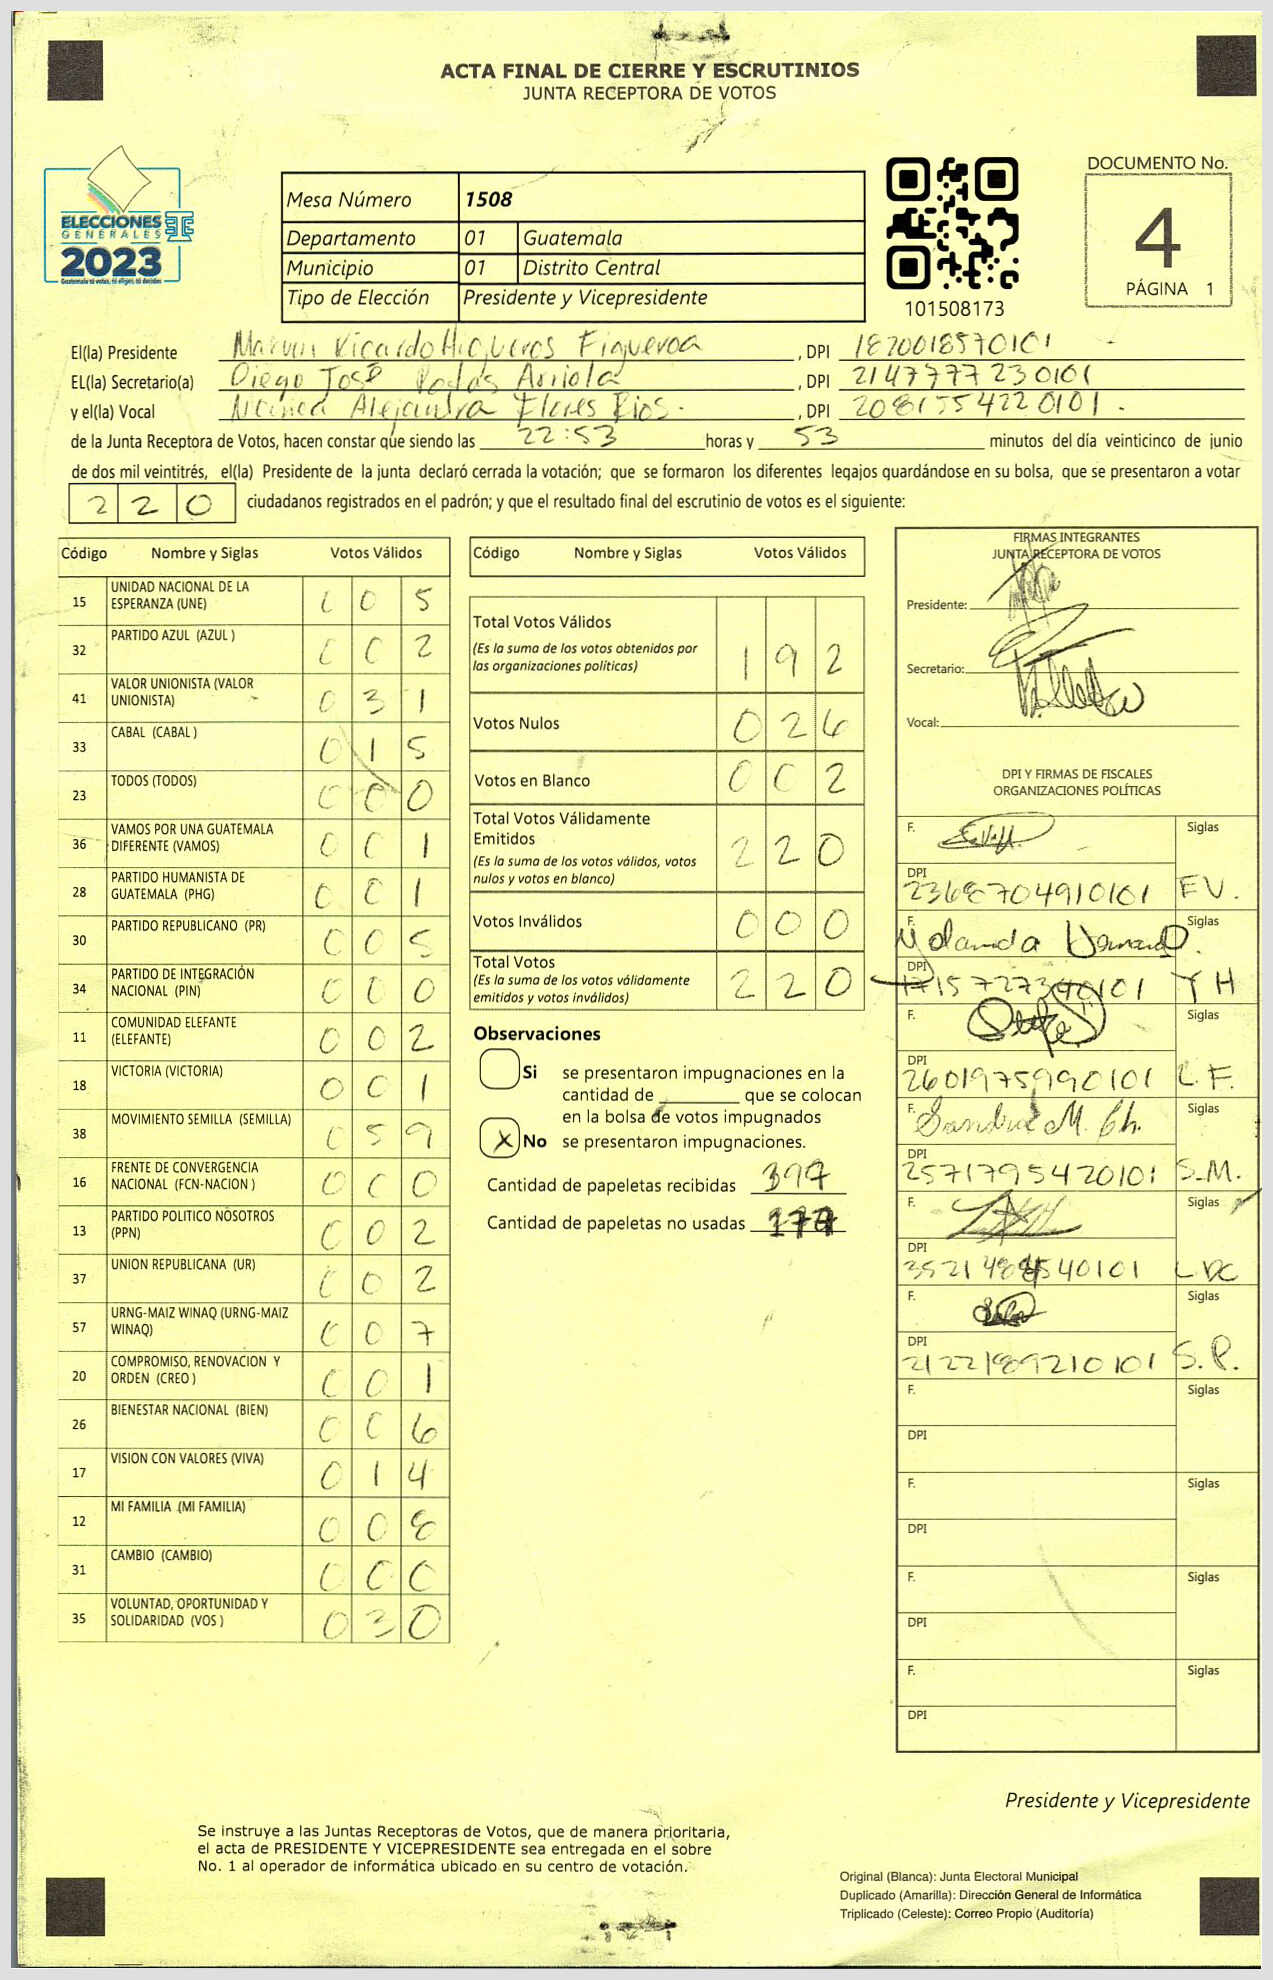 ACTA FINAL DE CIERRE Y ESCRUTINIOS
JUNTA RECEPTORA DE VOTOS
ELECCIONES
GENERALES
2023
Guatemala tú votas, tú eliges, tú decides
Mesa Número 1508
Departamento 01 Guatemala
Municipio 01 Distrito Central
Tipo de Elección Presidente y Vicepresidente
101508173
DOCUMENTO No.
4
PÁGINA 1
El(la) Presidente Marvin Ricardo Higueros Figueroa , DPI 1870018570101
EL(la) Secretario(a) Diego José Rodas Arriola , DPI 2147777230101
y el(la) Vocal Alejandra Flores Rios. , DPI 2081554220101.
de la Junta Receptora de Votos, hacen constar que siendo las 22:53 horas y 53 minutos del día veinticinco de junio
de dos mil veintitrés, el(la) Presidente de la junta declaró cerrada la votación; que se formaron los diferentes legajos guardándose en su bolsa, que se presentaron a votar
220 ciudadanos registrados en el padrón; y que el resultado final del escrutinio de votos es el siguiente:
Código Nombre y Siglas Votos Válidos
15 UNIDAD NACIONAL DE LA ESPERANZA (UNE) 005
32 PARTIDO AZUL (AZUL ) 002
41 VALOR UNIONISTA (VALOR UNIONISTA) 031
33 CABAL (CABAL ) 015
23 TODOS (TODOS) 000
36 VAMOS POR UNA GUATEMALA DIFERENTE (VAMOS) 001
28 PARTIDO HUMANISTA DE GUATEMALA (PHG) 001
30 PARTIDO REPUBLICANO (PR) 005
34 PARTIDO DE INTEGRACIÓN NACIONAL (PIN) 000
11 COMUNIDAD ELEFANTE (ELEFANTE) 002
18 VICTORIA (VICTORIA) 001
38 MOVIMIENTO SEMILLA (SEMILLA) 059
16 FRENTE DE CONVERGENCIA NACIONAL (FCN-NACION ) 000
13 PARTIDO POLITICO NOSOTROS (PPN) 002
37 UNION REPUBLICANA (UR) 002
57 URNG-MAIZ WINAQ (URNG-MAIZ WINAQ) 007
20 COMPROMISO, RENOVACION Y ORDEN (CREO ) 001
26 BIENESTAR NACIONAL (BIEN) 006
17 VISION CON VALORES (VIVA) 014
12 MI FAMILIA (MI FAMILIA) 008
31 CAMBIO (CAMBIO) 000
35 VOLUNTAD, OPORTUNIDAD Y SOLIDARIDAD (VOS ) 030
Código Nombre y Siglas Votos Válidos
Total Votos Válidos 192
(Es la suma de los votos obtenidos por
las organizaciones políticas)
Votos Nulos 026
Votos en Blanco 002
Total Votos Válidamente
Emitidos 220
(Es la suma de los votos válidos, votos
nulos y votos en blanco)
Votos Inválidos 000
Total Votos 220
(Es la suma de los votos válidamente
emitidos y votos inválidos)
Observaciones
Si se presentaron impugnaciones en la
cantidad de ________ que se colocan
en la bolsa de votos impugnados
X No se presentaron impugnaciones.
Cantidad de papeletas recibidas 397
Cantidad de papeletas no usadas 177
FIRMAS INTEGRANTES
JUNTA RECEPTORA DE VOTOS
Presidente:
Secretario:
Vocal:
DPI Y FIRMAS DE FISCALES
ORGANIZACIONES POLÍTICAS
F. Siglas
DPI
2368704910101 FV.
F. Siglas
Yolanda
DPI
Y H
F. Siglas
DPI
2601975990101 L.F.
F. Siglas
Sandra M. Ch.
DPI
2571795420101 S.M.
F. Siglas
DPI
LDC
F. Siglas
DPI
2122189210101 S.P.
F. Siglas
DPI
F. Siglas
DPI
F. Siglas
DPI
F. Siglas
DPI
Presidente y Vicepresidente
Se instruye a las Juntas Receptoras de Votos, que de manera prioritaria,
el acta de PRESIDENTE Y VICEPRESIDENTE sea entregada en el sobre
No. 1 al operador de informática ubicado en su centro de votación.
Original (Blanca): Junta Electoral Municipal
Duplicado (Amarilla): Dirección General de Informática
Triplicado (Celeste): Correo Propio (Auditoría)